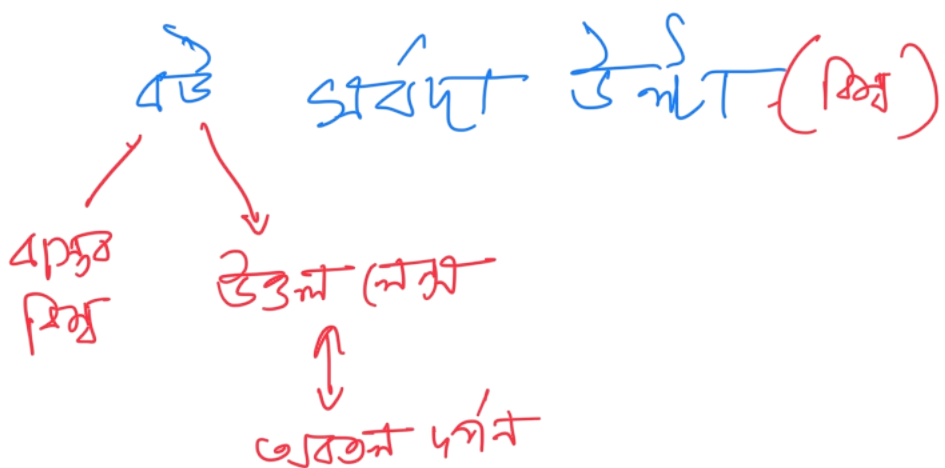 বউ সর্বদা উল্টা (বিম্ব)
বাস্তব
বিম্ব
উত্তল লেন্স
অবতল দর্পন